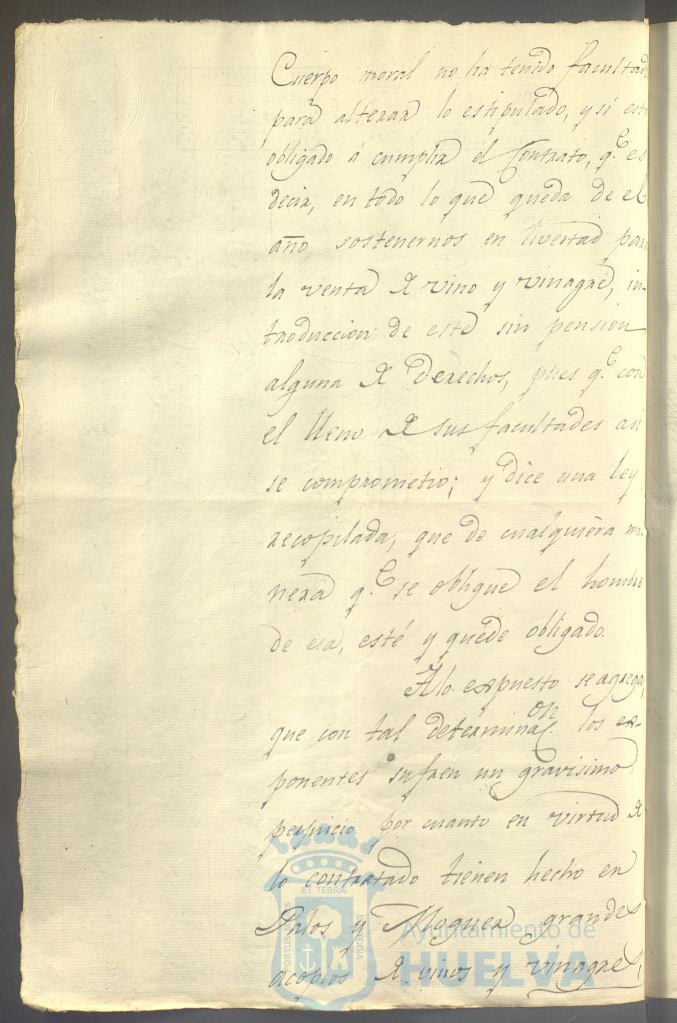 Cuerpo moral no ha tenido facultad
para alterar lo estipulado, y si está
obligado á cumplir el Contrato, q.e es
decir, en todo lo que queda de el
año sostenernos en livertad para
la venta de vino y vinagre, in-
troduccion de este sin pension
alguna de derechos, pues q.e con
el lleno de sus facultades asi
se comprometio; y dice una ley
recopilada, que de cualquiera ma
nera q.e se obligue el hombre
de esa, esté y quede obligado.
A lo expuesto se agrega,
que con tal determina.on los ex-
ponentes sufren un gravisimo
perjuicio por cuanto en virtud de
lo contratado tienen hecho en
Palos y Moguer grandes
acopios de vinos y vinagres,
PORTUS MARIS ET TERRÆ CUSTODIA
Ayuntamiento de
HUELVA